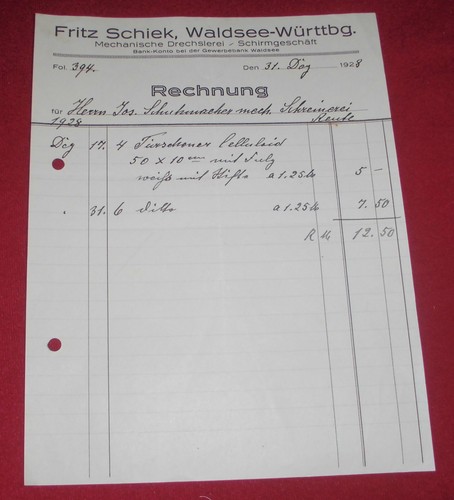 Fritz Schiek, Waldsee-Württbg.
Mechanische Drechslerei - Schirmgeschäft
Bank-Konto bei der Gewerbebank Waldsee
Fol. 394. Den 31. Dez 1928
Rechnung
für Herrn Jos. Schuhmacher mech. Schreinerei
1928 Reute
Dez 17. 4 Türschoner Celluloid
50 x 10 cm mit
weiß mit Stifte a 1.25 M 5 -
. 31. 6 ditto a 1.25 M 7. 50
R M 12. 50